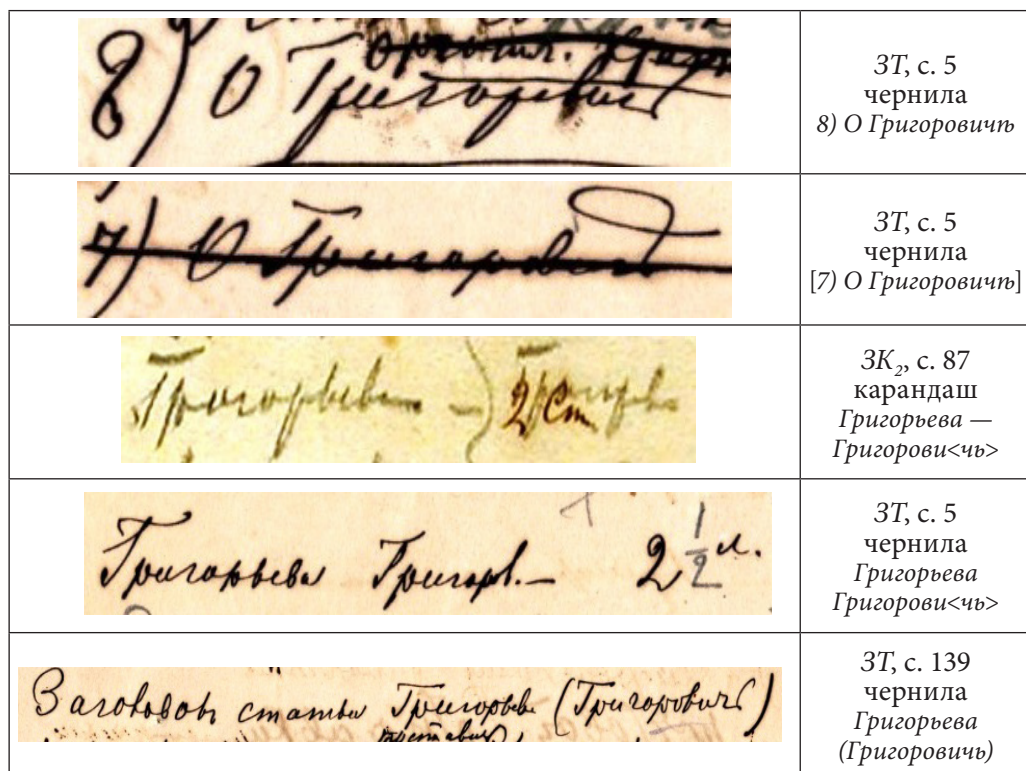 8) О Григоровичѣ
ЗТ, с. 5
чернила
8) О Григоровичѣ
7) О Григоровичѣ
ЗТ, с. 5
чернила
[7) О Григоровичѣ]
Григорьева — 2 ст
ЗК₂, с. 87
карандаш
Григорьева —
Григорови<чь>
Григорьева Григорв. — 2 1/2 л.
ЗТ, с. 5
чернила
Григорьева
Григорови<чь>
Заголовокъ статьи Григорьева (Григоровичь)
ЗТ, с. 139
чернила
Григорьева
(Григоровичь)